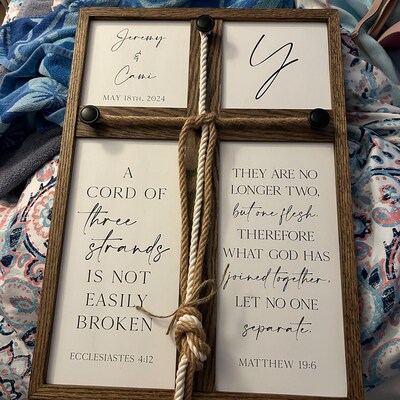 Jeremy
&
Cami
MAY 18TH, 2024
Y
A
CORD OF
three
strands
IS NOT
EASILY
BROKEN
ECCLESIASTES 4:12
THEY ARE NO
LONGER TWO,
but one flesh.
THEREFORE
WHAT GOD HAS
joined together,
LET NO ONE
separate.
MATTHEW 19:6